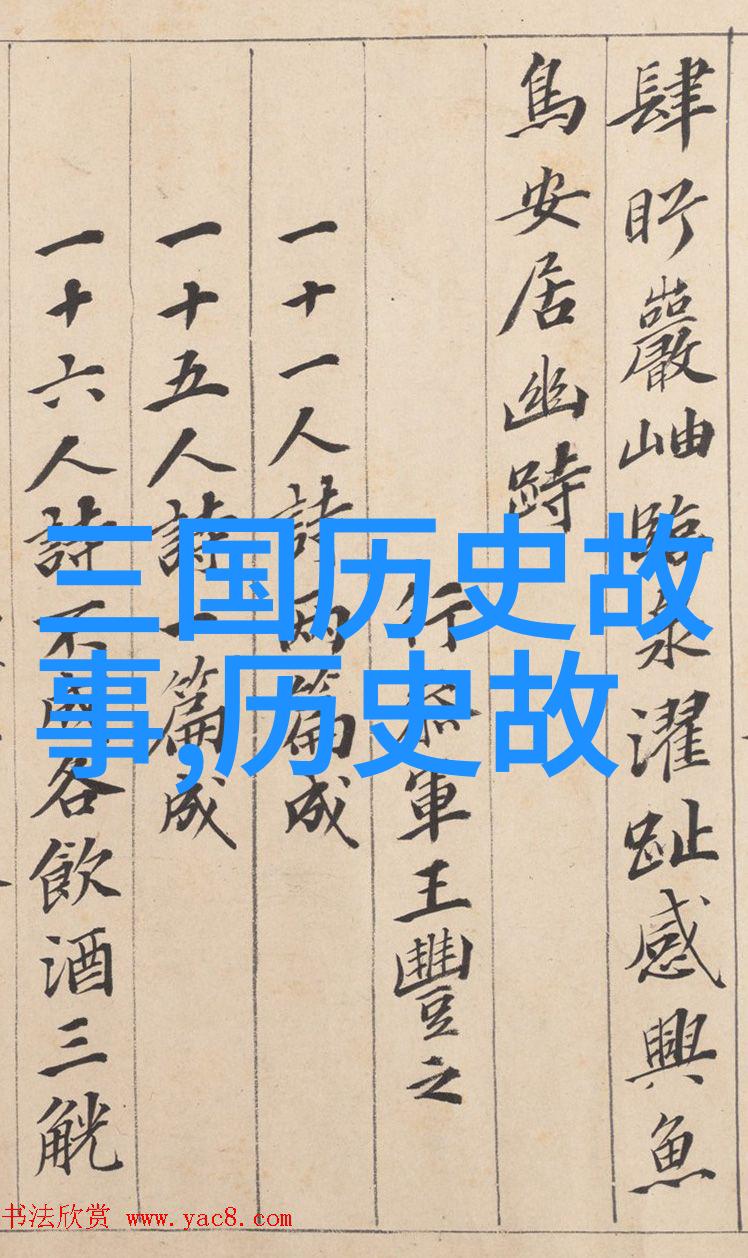 肆眄巖岫臨泉濯趾感興魚
鳥安居幽跱
行參軍王豐之
一十一人詩兩篇成
一十五人詩一篇成
一十六人詩不成各飲酒三觥
三国历史故
事,历史故
书法欣赏 www.yac8.com